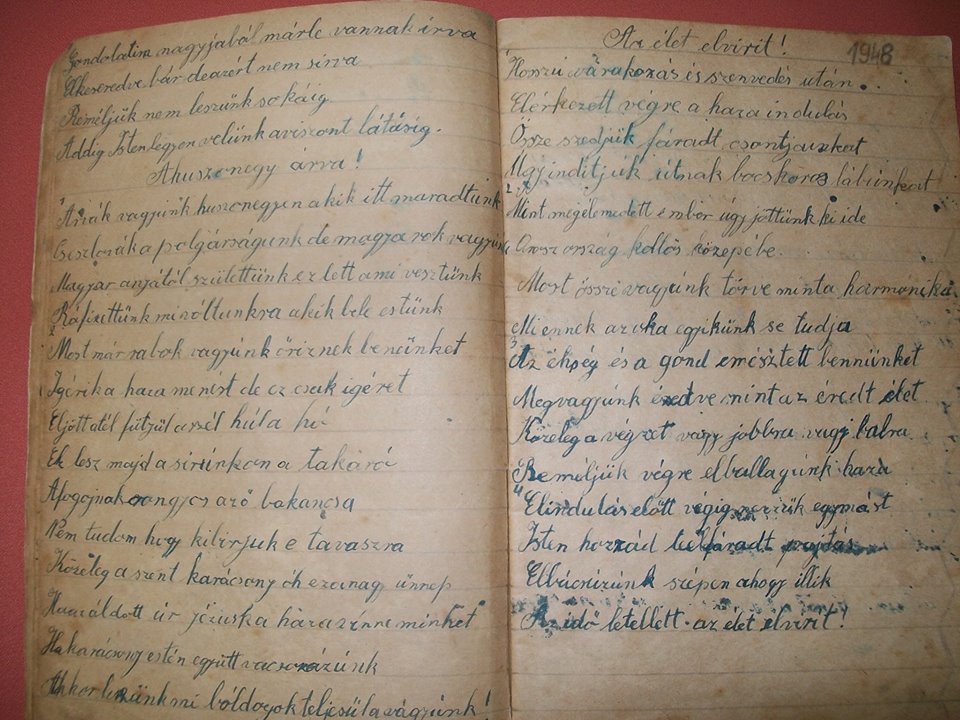 Gondolatim nagyjaból márle vannak írva
Elkeseredve bár deazért nem sírva
Reméljük nem leszünk sokáig
Addig Isten legyen velünk aviszont látásig.
Ahuszonegy árva!
Árvák vagyunk huszonegyen akik itt maradtunk
Csiszlovák a polgárságunk de magyarok vagyunk
Magyar anyától születtünk ez lett ami vesztünk
Ráfizettünk mivóltunkra akik bele estünk
2
Most már rabok vagyunk őriznek benünket
Igérik a haza menést de ez csak igéret
Eljött atél fütyül aszél húla hó
Ek lesz majd a sírunkon a takaró
Afogojnak rongyos aző bakancsa
Nem tudom hogy kibirjuk e tavaszra
Közeleg a szent karácsony óh eza nagy ünnep
Hamáldott úr jézuska haza vinne minket
Ha karácsony estén együtt vacsorázúnk
Ahkor leszünk mi bóldogok teljesúl a vágyunk!
Az élet elvirit!
1948
Hosszú várakozás és szenvedés után..
Elérkezett végre a haza indulás
Össze szedjük fáradt csontjainkat
Úgy indítjuk útnak bocskoros lábunkat
2
Mint megélemedett ember úgy jöttünk ki ide
Oroszország kellős közepébe.
Most össze vagyunk törve mint a harmonika
Mi ennek az oka egyikünk se tudja
3
Az éhség és a gond emésztett bennünket
Megvagyunk érve mint az érett élet
Közeleg a végzet vagy jobbra vagy balra
Reméljük végre elballagunk haza
4
Elindulás előtt végig nézzük egymást
Isten hozzád fáradt pajtás
Elbúcsúzunk szépen ahogy illik
Az idő letellett az élet elvirit!